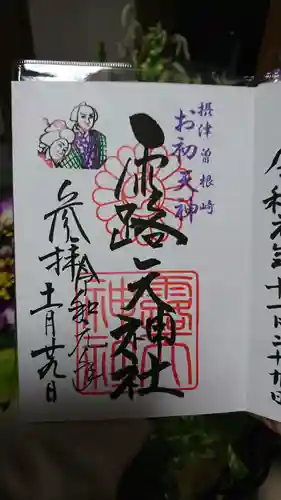 摂津曽根崎
お初天神
露天神社
参拝
令和元年
十一月廿九日
令和元年十一月二十九日